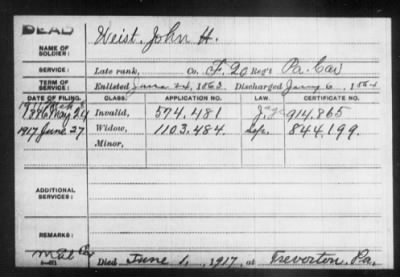 DEAD
NAME OF SOLDIER: Weist, John H.
SERVICE: Late rank, Co. F, 20 Reg't Pa. Cav
TERM OF SERVICE: Enlisted June 24, 1863 Discharged Jany 6, 1864
DATE OF FILING. CLASS. APPLICATION NO. LAW. CERTIFICATE NO.
1886 May 24 Invalid, 574.481 914.865
1917 June 27 Widow, 1103.484. 844.199.
Minor,
ADDITIONAL SERVICES:
REMARKS:
Died June 1, 1917, at Treverton, Pa.